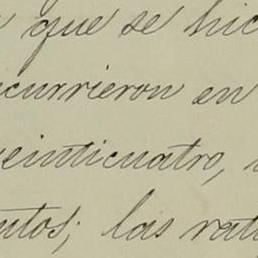 que se hic
currieron en
veinticuatro,
ntos; las rat